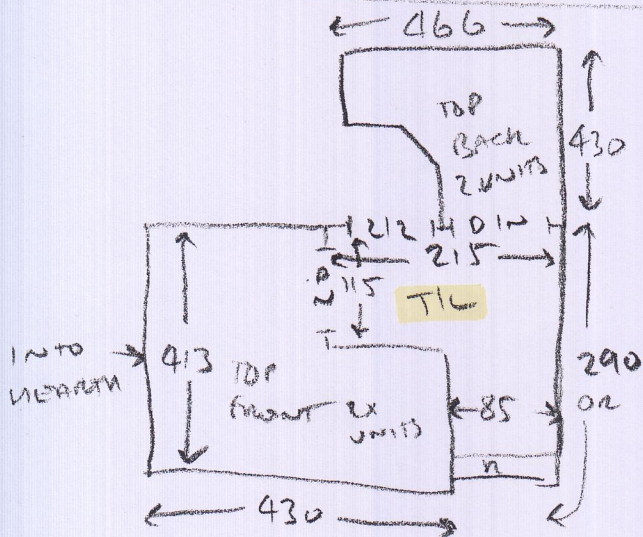 466
TOP
BACK
2 UNITS
430
212
DIN
215
DIN
115
T/L
INTO
HEARTH
413
TOP
FRONT 2X
UNITS
85
290
OR
n
430